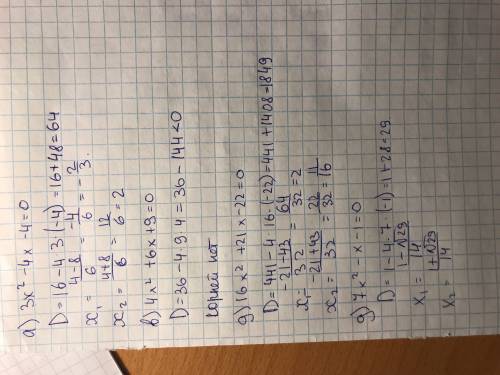 а) 3x² - 4x - 4 = 0
D = 16 - 4·3·(-4) = 16 + 48 = 64
x₁ = (4 - 8)/6 = -4/6 = -2/3.
x₂ = (4 + 8)/6 = 12/6 = 2
в) 4x² + 6x + 9 = 0
D = 36 - 4·9·4 = 36 - 144 < 0
корней нет
д) 16x² + 21x - 22 = 0
D = 441 - 4·16·(-22) = 441 + 1408 = 1849
x₁ = (-21 + 43)/32 = 64/32 = 2
x₂ = (-21 + 43)/32 = 22/32 = 11/16
д) 7x² - x - 1 = 0
D = 1 - 4·7·(-1) = 1 + 28 = 29
x₁ = (1 - √29)/14
x₂ = (1 + √29)/14